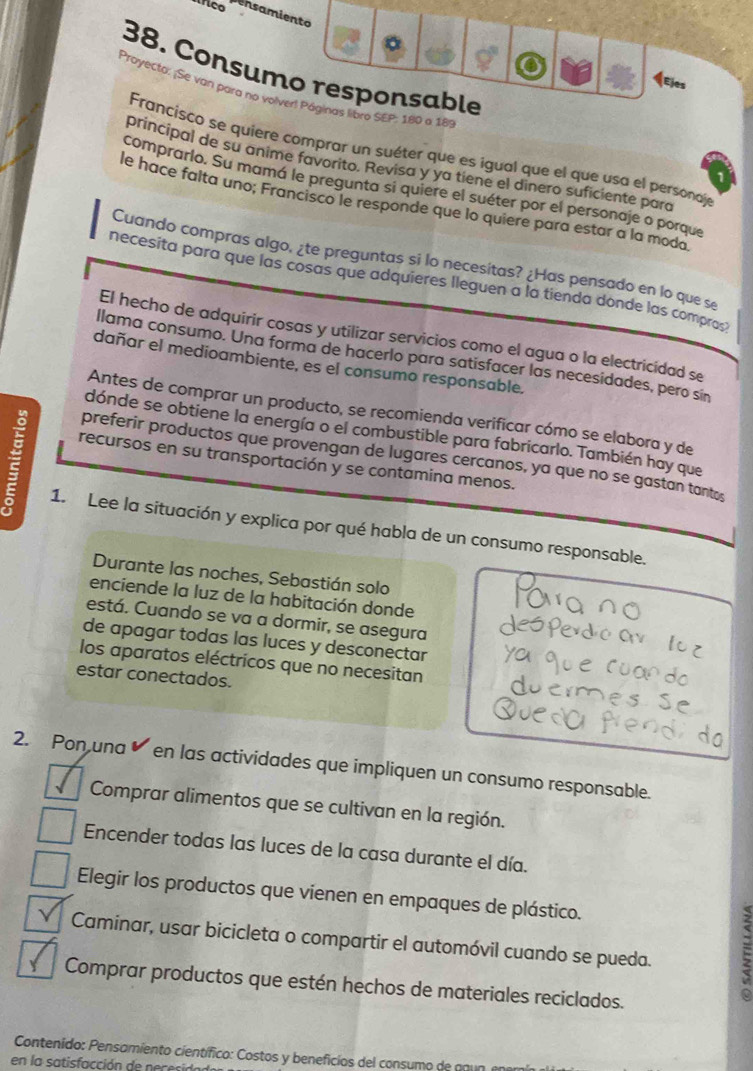 ensamiento
Ejes
38. Consumo responsable
Proyecto: ¡Se van para no volver! Páginas libro SEP: 180 a 189
1
Francisco se quiere comprar un suéter que es igual que el que usa el personaje
principal de su anime favorito. Revisa y ya tiene el dinero suficiente para
comprarlo. Su mamá le pregunta si quiere el suéter por el personaje o porque
le hace falta uno; Francisco le responde que lo quiere para estar a la moda.
Cuando compras algo, ¿te preguntas si lo necesitas? ¿Has pensado en lo que se
necesita para que las cosas que adquieres lleguen a la tienda donde las compras?
El hecho de adquirir cosas y utilizar servicios como el agua o la electricidad se
llama consumo. Una forma de hacerlo para satisfacer las necesidades, pero sin
dañar el medioambiente, es el consumo responsable.
Antes de comprar un producto, se recomienda verificar cómo se elabora y de
dónde se obtiene la energía o el combustible para fabricarlo. También hay que
preferir productos que provengan de lugares cercanos, ya que no se gastan tantos
recursos en su transportación y se contamina menos.
Comunitarios
1. Lee la situación y explica por qué habla de un consumo responsable.
Durante las noches, Sebastián solo
enciende la luz de la habitación donde
está. Cuando se va a dormir, se asegura
de apagar todas las luces y desconectar
los aparatos eléctricos que no necesitan
estar conectados.
Para no
desperdicar luz
ya que cuando
duermes se
Queda prendido
2. Pon una ✔ en las actividades que impliquen un consumo responsable.
✓ Comprar alimentos que se cultivan en la región.
Encender todas las luces de la casa durante el día.
Elegir los productos que vienen en empaques de plástico.
✓ Caminar, usar bicicleta o compartir el automóvil cuando se pueda.
✓ Comprar productos que estén hechos de materiales reciclados.
© SANTILLANA
Contenido: Pensamiento científico: Costos y beneficios del consumo de agua,
en la satisfacción de